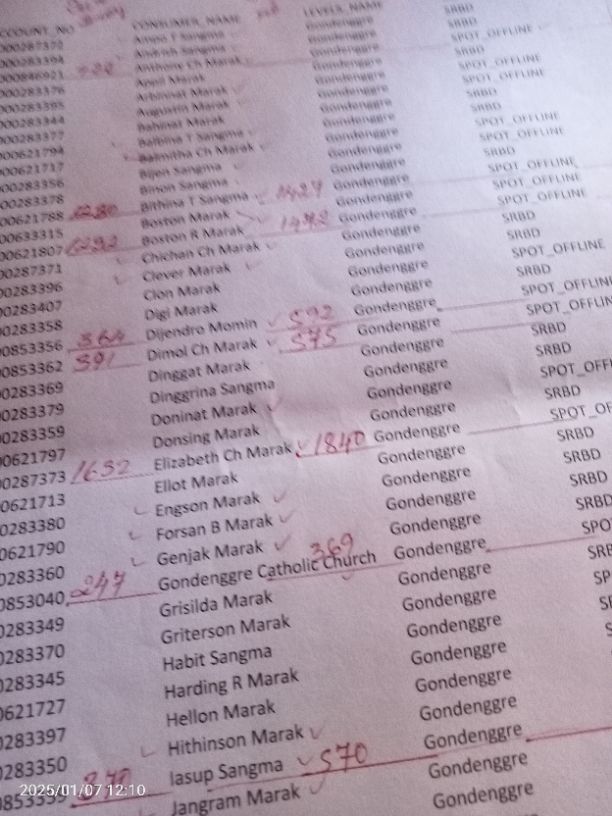 CCOUNT_NO CONSUMER_NAME LEVEL_NAME
000287372 Sangma Gondenggre SRBD
000283394 Sangma Gondenggre SRBD
000846921 Anthone Ch Marak Gondenggre SPOT_OFFLINE
000283376 Appil Marak Gondenggre SRBD
000283395 Marak Gondenggre SPOT_OFFLINE
000283344 Augustin Marak Gondenggre SPOT_OFFLINE
000283377 Bahinat Marak Gondenggre SRBD
000621794 Balbina T Sangma Gondenggre SPOT_OFFLINE
000621717 Balmitha Ch Marak Gondenggre SPOT_OFFLINE
000283356 Bijen Sangma Gondenggre SRBD
000283378 Binon Sangma Gondenggre SPOT_OFFLINE
000621788 1280 Bithina T Sangma 1427 Gondenggre SPOT_OFFLINE
00633315 Boston Marak Gondenggre SPOT_OFFLINE
00621807 1292 Boston R Marak 1442 Gondenggre SPOT_OFFLINE
00287371 Chichan Ch Marak Gondenggre SRBD
00283396 Clever Marak Gondenggre SRBD
00283407 Cion Marak Gondenggre SPOT_OFFLINE
00283358 Digi Marak Gondenggre SRBD
00853356 364 Dijendro Momin 592 Gondenggre SPOT_OFFLINE
00853362 391 Dimol Ch Marak 575 Gondenggre SPOT_OFFLIN
00283369 Dinggat Marak Gondenggre SRBD
00283379 Dinggrina Sangma Gondenggre SRBD
00283359 Doninat Marak Gondenggre SPOT_OFF
00621797 Donsing Marak Gondenggre SRBD
00287373 1652 Elizabeth Ch Marak 1840 Gondenggre SPOT_OF
0621713 Ellot Marak Gondenggre SRBD
0283380 Engson Marak Gondenggre SRBD
0621790 Forsan B Marak Gondenggre SRBD
0283360 Genjak Marak Gondenggre SRBD
0853040 247 Gondenggre Catholic Church 369 Gondenggre SPO
0283349 Grisilda Marak Gondenggre SRB
0283370 Griterson Marak Gondenggre SP
0283345 Habit Sangma Gondenggre SR
0621727 Harding R Marak Gondenggre
0283397 Hellon Marak Gondenggre
0283350 Hithinson Marak Gondenggre
0853339 370 Iasup Sangma 570 Gondenggre
Jangram Marak Gondenggre
2025/01/07 12:10